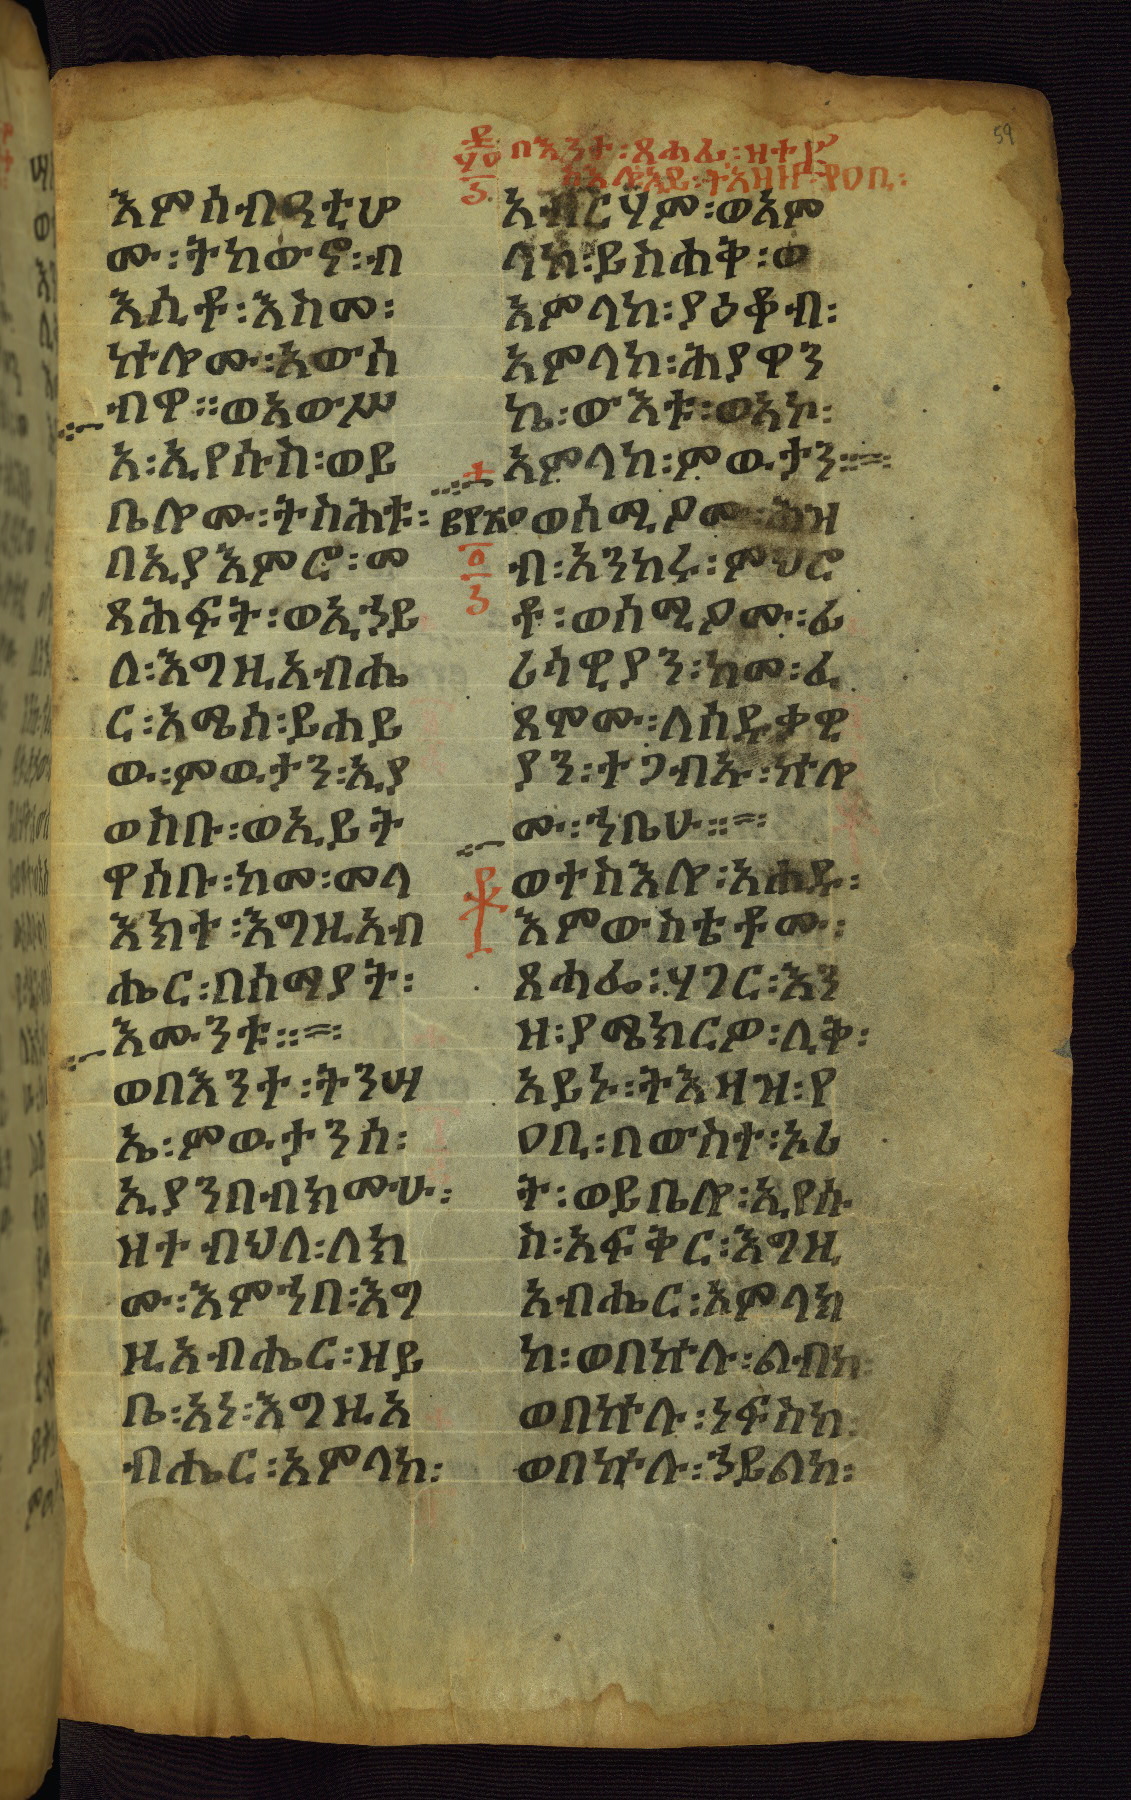 59
በእንተ፡ጸሓፊ፡ዘተ
አይ፡ትእዛዝ፡የዐቢ፡
እምሰብዓቲሆ
ሙ፡ትከውኖ፡ብ
እሲቶ፡እስመ፡
ኵሎሙ፡አውሰ
ብዋ፡፡ወአውሥ
አ፡ኢየሱስ፡ወይ
ቤሎሙ፡ትስሕቱ፡
በኢያእምሮ፡መ
ጻሕፍት፡ወኢኀይ
ለ፡እግዚአብሔ
ር፡አሜሰ፡ይሐይ
ዉ፡ምዉታን፡ኢያ
ወስቡ፡ወኢይት
ዋሰቡ፡ከመ፡መላ
እክተ፡እግዚአብ
ሔር፡በሰማያት፡
እሙንቱ፡፡
ወበእንተ፡ትንሣ
ኤ፡ምዉታንሰ፡
ኢያንበብክሙሁ፡
ዘተብህለ፡ለክ
ሙ፡እምኀበ፡እግ
ዚአብሔር፡ዘይ
ቤ፡አነ፡እግዚአ
ብሔር፡አምላከ፡
አብርሃም፡ወአም
ላከ፡ይስሐቅ፡ወ
አምላከ፡ያዕቆብ፡
አምላከ፡ሕያዋን
ኬ፡ውእቱ፡ወአኮ፡
አምላከ፡ምዉታን፡፡
ወሰሚዖሙ፡ሕዝ
ብ፡አንከሩ፡ምህሮ
ቶ፡ወሰሚዖሙ፡ፈ
ሪሳዊያን፡ከመ፡ፈ
ጸሞሙ፡ለሰዱቃዊ
ያን፡ተጋብኡ፡ኵሎ
ሙ፡ኀቤሁ፡፡
ወተስእሎ፡አሐዱ፡
እምውስቴቶሙ፡
ጸሓፌ፡ሃገር፡እን
ዘ፡ያሜክርዎ፡ሊቅ፡
አይኑ፡ትእዛዝ፡የ
ዐቢ፡በውስተ፡ኦሪ
ት፡ወይቤሎ፡ኢየሱ
ስ፡አፍቅር፡እግዚ
አብሔር፡አምላክ
ከ፡ወበኵሉ፡ልብከ፡
ወበኵሉ፡ነፍስከ፡
ወበኵሉ፡ኀይልከ፡